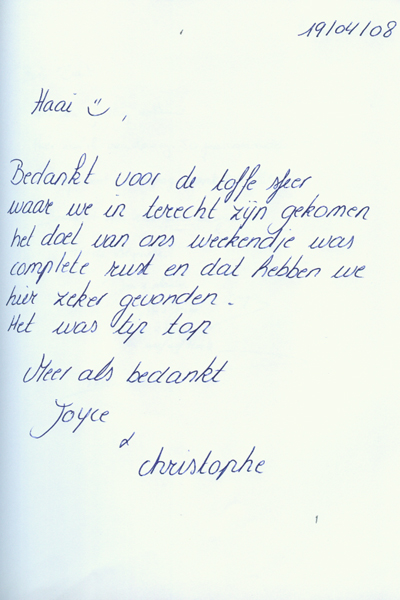 19/04/08
Haai ü,
Bedankt voor de toffe sfeer
waar we in terecht zijn gekomen
het doel van ons weekendje was
complete rust en dat hebben we
hier zeker gevonden.
Het was tip top
Meer als bedankt
Joyce
&
christophe